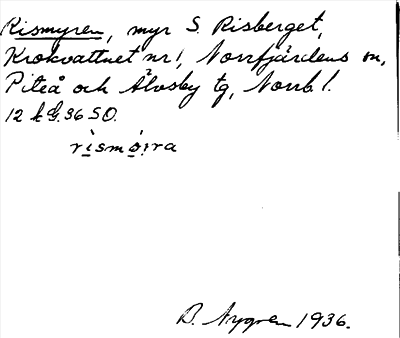 Rismyren, myr S. Risberget,
Krokvattnet nr 1, Norrfjärdens sn,
Piteå och Älvsby tg, Norrb l.
12 k G. 36 SO.
rismó:ra
B. Nygren 1936.